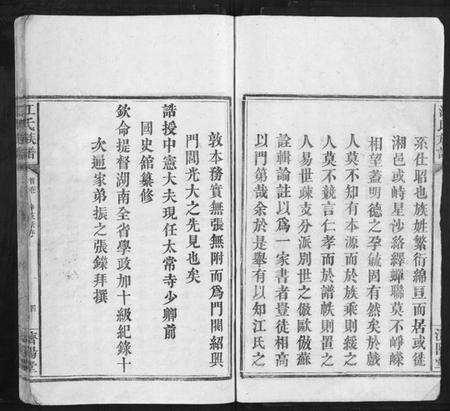 系仕昭也族姓繁衍綿亘而居或徙
湘邑或峙星沙絡繹蟬聯莫不崢嶸
相望蓋明德之孕毓固有然矣於戲
人莫不知有本源而於族乘則緩之
人莫不競言仁孝而於譜帙則置之
人易世疎支分派別世之倣歐倣蘇
詮輯論註以爲一家書者豈徒相高
以門第哉余於是舉有以知江氏之
敦本務實無張無附而爲門閥紹興
門閥光大之先見也矣
誥授中憲大夫現任太常寺少卿前
國史館纂修
欽命提督湖南全省學政加十級紀錄十
次通家弟振之張鑅拜撰
江氏族譜
濟陽堂